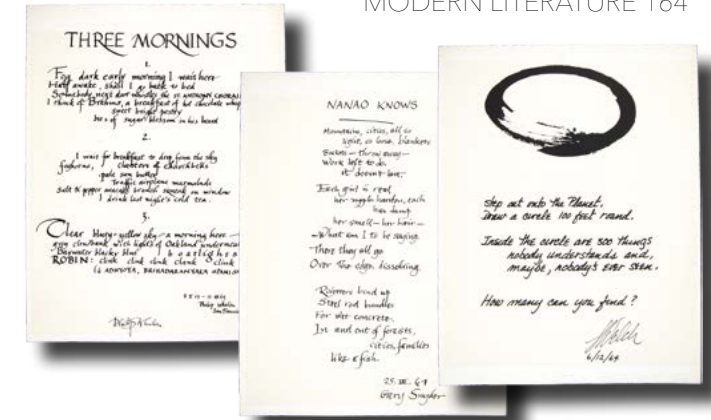 MODERN LITERATURE 164
THREE MORNINGS
1.
Fog dark early morning I wait here
Half awake, shall I go back to bed
Somebody next door whistles the ST ANTHONY CHORALE
I think of Brahms, a breakfast of hot chocolate whip
sweet bright pastry
bits of sugar blossom in his beard
2.
I wait for breakfast to drop from the sky
foghorns, clusters of churchbells
pale sun butter
Traffic airplane marmalade
Salt & pepper avocado branch squeak on window
I drink last night's cold tea.
3.
Clear blue-yellow sky - a morning here
grey cloudbank with lights of Oakland underneath
Bay water blacky blue boatlights
ROBIN: clink clink clink clink clink
Philip Whalen
San Francisco
NANAO KNOWS
Mountains, cities, all so
light, so loose, blankets
Buckets — throw away —
Work left to do.
it doesn't last.
Each girl is real,
her nipple harden, each
has damp
her smell — her hair —
— What am I to be saying.
There they all go
Over the edge, dissolving.
Riveters bind up
Steel rod bundles
For wet concrete.
In and out of forests,
cities, families
like a fish.
Gary Snyder
Step out onto the Planet.
Draw a circle 100 feet round.
Inside the circle are 300 things
nobody understands and,
maybe, nobody's ever seen.
How many can you find?
Welch
6/12/64